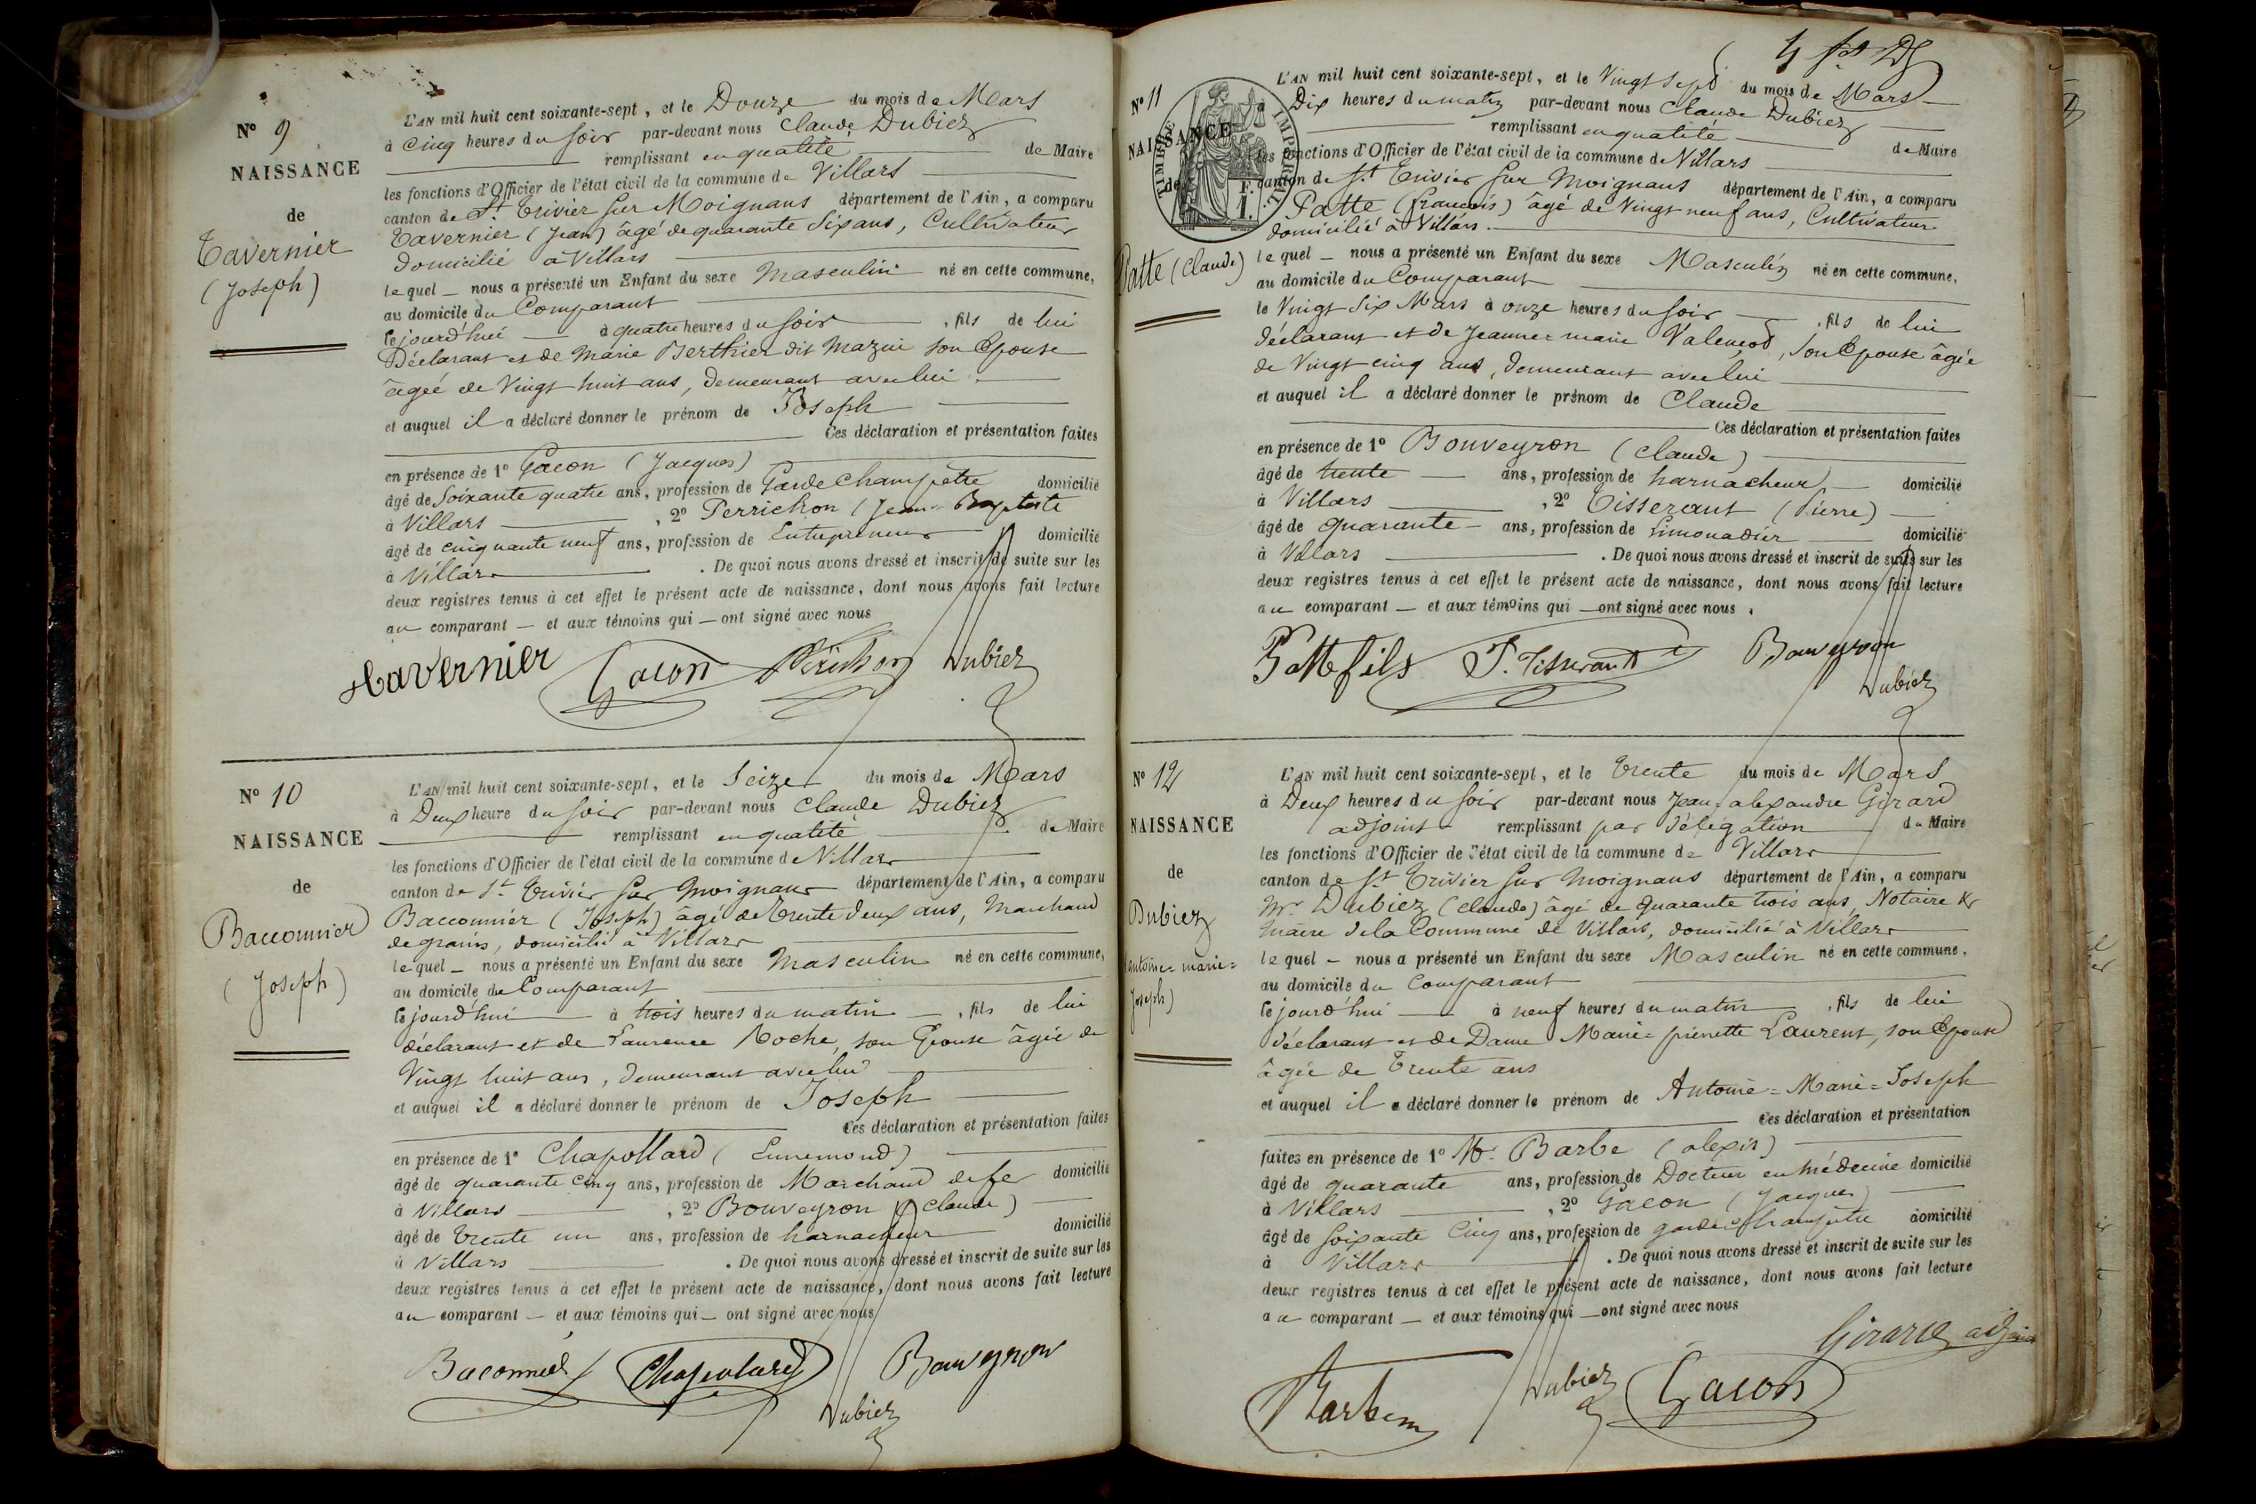 N° 9
NAISSANCE
de
Tavernier
(Joseph)
L'AN mil huit cent soixante-sept, et le Douze du mois de Mars
à cinq heures du soir par-devant nous Claude Dubiez
remplissant en qualité de Maire
les fonctions d'Officier de l'état civil de la commune de Villars
canton de St. Trivier sur Moignans département de l'Ain, a comparu
Tavernier (Jean) âgé de quarante six ans, Cultivateur
domicilié à Villars
lequel nous a présenté un Enfant du sexe Masculin né en cette commune,
au domicile du Comparant
cejourd'hui à quatre heures du soir, fils de lui
Déclarant et de Marie Berthier dit Mazui son Epouse
âgée de Vingt huit ans, demeurant avec lui
et auquel il a déclaré donner le prénom de Joseph
Ces déclaration et présentation faites
en présence de 1° Gacon (Jacques)
âgé de Soixante quatre ans, profession de Garde Champêtre domicilié
à Villars, 2° Perrichon (Jean-Baptiste
âgé de cinquante neuf ans, profession de Entrepreneur domicilié
à Villars. De quoi nous avons dressé et inscrit de suite sur les
deux registres tenus à cet effet le présent acte de naissance, dont nous avons fait lecture
au comparant et aux témoins qui ont signé avec nous
Tavernier Gacon Périchon Dubiez
N° 10
NAISSANCE
de
Bacconnier
(Joseph)
L'AN mil huit cent soixante-sept, et le Seize du mois de Mars
à Deux heure du soir par-devant nous Claude Dubiez
remplissant en qualité de Maire
les fonctions d'Officier de l'état civil de la commune de Villars
canton de St Trivier sur Moignans département de l'Ain, a comparu
Bacconnier (Joseph) âgé de Trente deux ans, Marchand
de grains, domicilié à Villars
lequel nous a présenté un Enfant du sexe Masculin né en cette commune,
au domicile du Comparant
cejourd'hui à trois heures du matin, fils de lui
déclarant et de Laurence Roche, son Epouse âgée de
Vingt huit ans, demeurant avec lui
et auquel il a déclaré donner le prénom de Joseph
Ces déclaration et présentation faites
en présence de 1° Chapollard (Ennemond)
âgé de quarante cinq ans, profession de Marchand de fer domicilié
à Villars, 2° Bouveyron (Claude)
âgé de trente un ans, profession de harnacheur domicilié
à Villars. De quoi nous avons dressé et inscrit de suite sur les
deux registres tenus à cet effet le présent acte de naissance, dont nous avons fait lecture
au comparant et aux témoins qui ont signé avec nous
Baconnier Chapolard Bouveyron
Dubiez
N° 11
NAISSANCE
de
Patte (Claude)
TIMBRE IMPERIAL
1 F.
L'AN mil huit cent soixante-sept, et le Vingt Sept du mois de Mars
à Dix heures du matin par-devant nous Claude Dubiez
remplissant en qualité de Maire
les fonctions d'Officier de l'état civil de la commune de Villars
canton de St Trivier sur Moignans département de l'Ain, a comparu
Patte (françois) âgé de Vingt neuf ans, Cultivateur
domicilié à Villars.
lequel nous a présenté un Enfant du sexe Masculin né en cette commune,
au domicile du Comparant
le Vingt Six Mars à onze heures du soir, fils de lui
déclarant et de Jeanne marie Valençod, son Epouse âgée
de Vingt cinq ans, demeurant avec lui
et auquel il a déclaré donner le prénom de Claude
Ces déclaration et présentation faites
en présence de 1° Bouveyron (Claude)
âgé de trente ans, profession de harnacheur domicilié
à Villars, 2° Tisserant (Pierre)
âgé de quarante ans, profession de Limonadier domicilié
à Villars. De quoi nous avons dressé et inscrit de suite sur les
deux registres tenus à cet effet le présent acte de naissance, dont nous avons fait lecture
au comparant et aux témoins qui ont signé avec nous.
Patte fils P. Tisserant Bouveyron
Dubiez
N° 12
NAISSANCE
de
Dubiez
(antoine=marie=
Joseph)
L'AN mil huit cent soixante-sept, et le Trente du mois de Mars
à Deux heures du soir par-devant nous Jean-alexandre Girard
adjoint remplissant par délégation de Maire
les fonctions d'Officier de l'état civil de la commune de Villars
canton de St Trivier sur Moignans département de l'Ain, a comparu
Mr. Dubiez (Claude) âgé de quarante trois ans, Notaire &
Maire de la Commune de Villars, domicilié à Villars
lequel nous a présenté un Enfant du sexe Masculin né en cette commune,
au domicile du Comparant
cejourd'hui à neuf heures du matin, fils de lui
déclarant et de Dame Marie=pierrette Laurent, son Epouse
âgée de Trente ans
et auquel il a déclaré donner le prénom de Antoine=Marie=Joseph
Ces déclaration et présentation
faites en présence de 1° Mr. Barbe (alexis)
âgé de quarante ans, profession de Docteur en médecine domicilié
à Villars, 2° Gacon (Jacques)
âgé de soixante Cinq ans, profession de garde Champêtre domicilié
à Villars. De quoi nous avons dressé et inscrit de suite sur les
deux registres tenus à cet effet le présent acte de naissance, dont nous avons fait lecture
au comparant et aux témoins qui ont signé avec nous
Girard adjoint
Dubiez Gacon